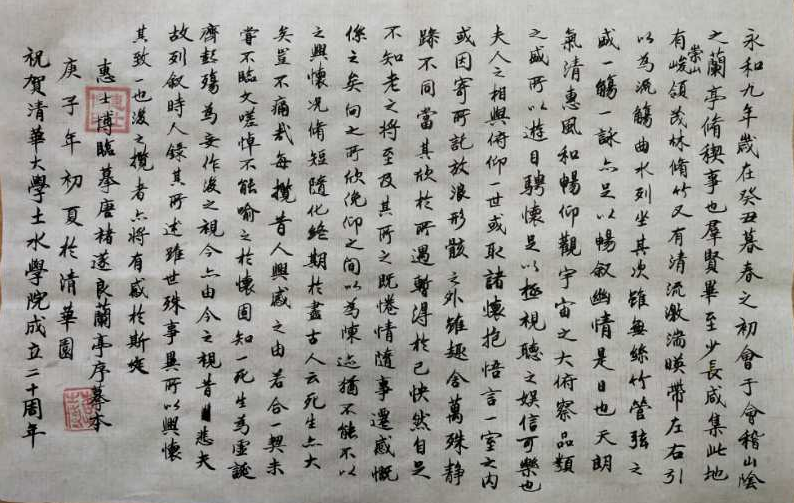 永和九年歲在癸丑暮春之初會于會稽山陰
之蘭亭脩稧事也羣賢畢至少長咸集此地
有崇山峻領茂林脩竹又有清流激湍暎帶左右引
以為流觴曲水列坐其次雖無絲竹管弦之
盛一觴一詠亦足以暢敘幽情是日也天朗
氣清惠風和暢仰觀宇宙之大俯察品類
之盛所以遊目騁懷足以極視聽之娛信可樂也
夫人之相與俯仰一世或取諸懷抱悟言一室之內
或因寄所託放浪形骸之外雖趣舍萬殊静
躁不同當其欣於所遇暫得於己快然自足
不知老之將至及其所之既惓情隨事遷感慨
係之矣向之所欣俛仰之間以為陳迹猶不能不以
之興懷況脩短隨化終期於盡古人云死生亦大
矣豈不痛哉每攬昔人興感之由若合一契未
甞不臨文嗟悼不能喻之於懷固知一死生為虛誕
齊彭殤為妄作後之視今亦由今之視昔悲夫
故列敘時人錄其所述雖世殊事異所以興懷
其致一也後之攬者亦將有感於斯文
惠士博臨摹唐褚遂良蘭亭序摹本
庚子年初夏於清華園
祝賀清華大學土水學院成立二十周年